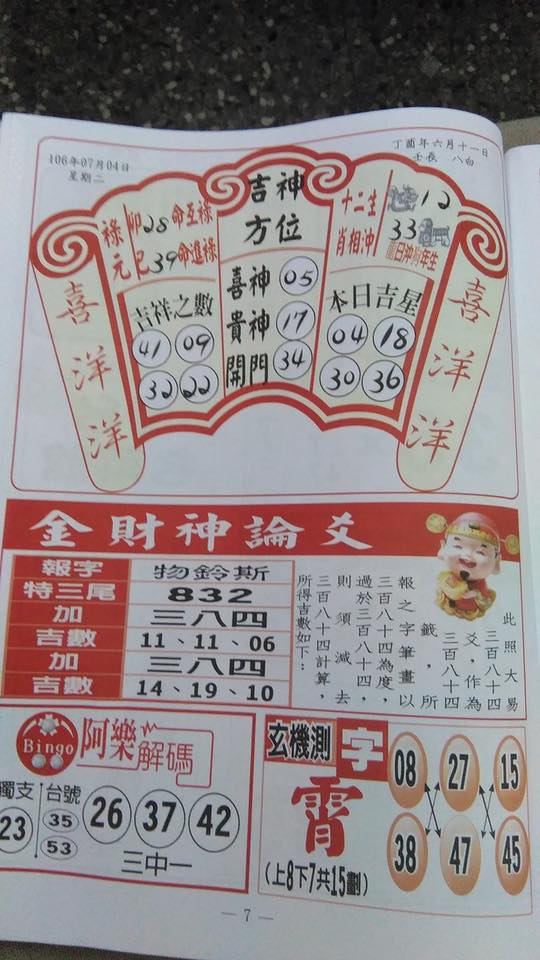 106年07月04日
星期二
丁酉年六月十一日
壬辰 八白
喜洋洋
祿元
卯28命互祿
巳39命進祿
吉祥之數
41 09
32 22
吉神方位
喜神 05
貴神 17
開門 34
十二生肖相沖
12
33
日沖 年生
本日吉星
04 18
30 36
喜洋洋
金財神論爻
報字 物鈴斯
特三尾 832
加 三八四
吉數 11、11、06
加 三八四
吉數 14、19、10
此照大易
三百八十四
爻,作為
三百八十四
籤,所
報之字筆畫以
三百八十四為度,
過於三百八十四,
則須減去
三百八十四計算,
所得吉數如下:
Bingo 阿樂解碼
獨支 23
台號 35 53
26 37 42
三中一
玄機測字
霄
(上8下7共15劃)
08 27 15
38 47 45
— 7 —